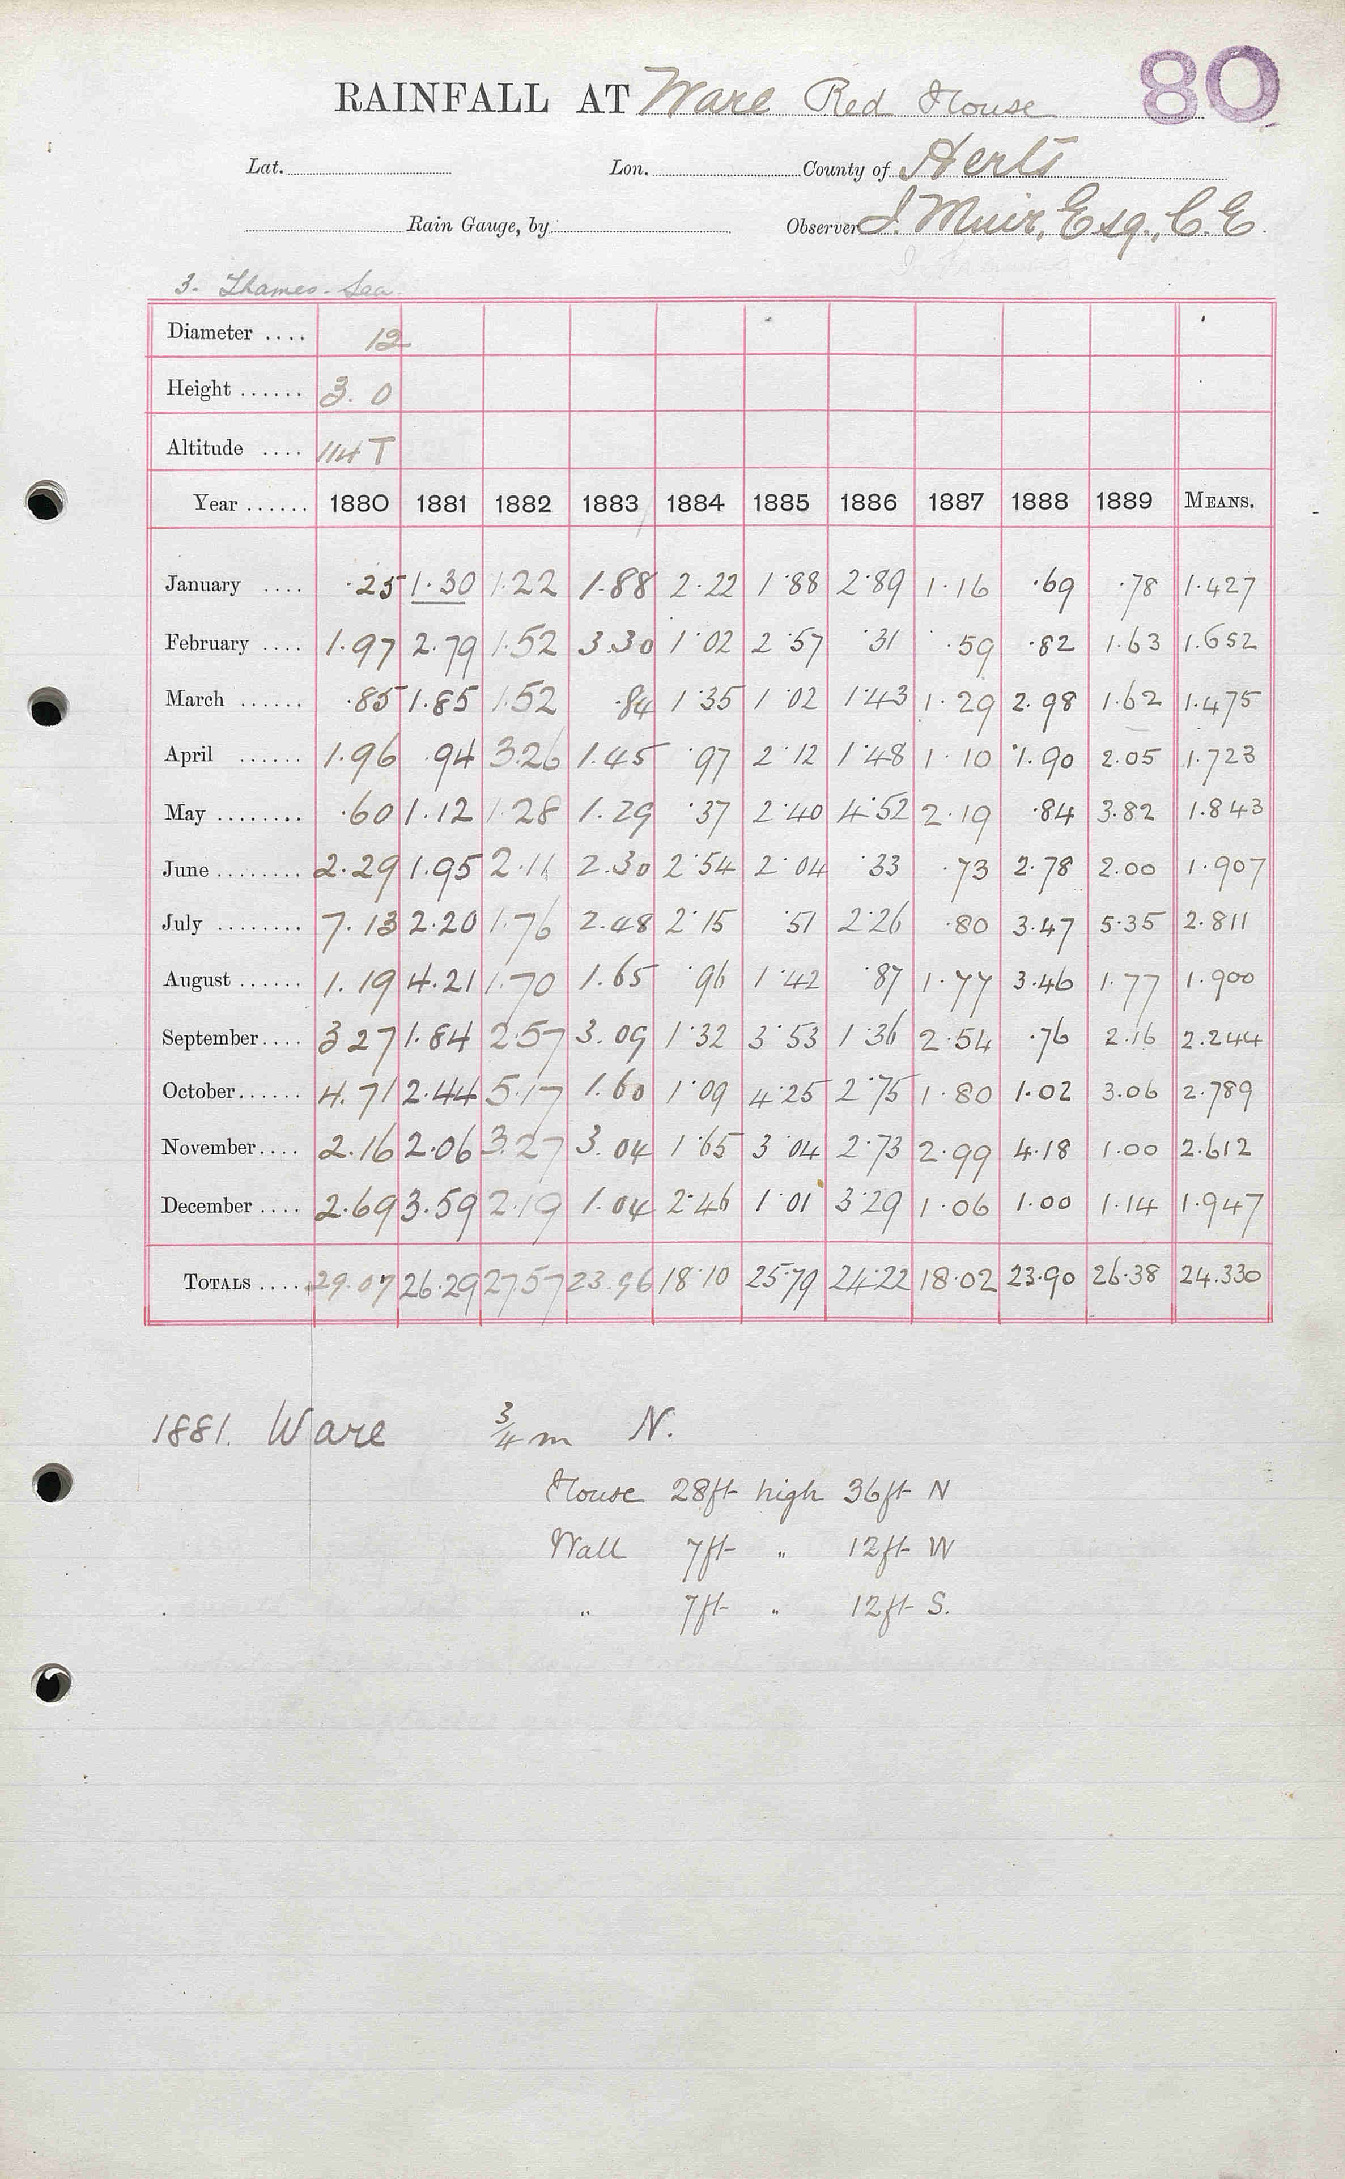 80
RAINFALL AT Ware Red House
Lat. Lon. County of Herts
Rain Gauge, by Observer J. Muir, Esq., C.E.
3. Thames-Sea
Diameter .... 12
Height ...... 3. 0
Altitude .... 114 T
Year ...... 1880 1881 1882 1883 1884 1885 1886 1887 1888 1889 MEANS.
January .... .25 1.30 1.22 1.88 2.22 1.88 2.89 1.16 .69 .78 1.427
February .... 1.97 2.79 1.52 3.30 1.02 2.57 .31 .59 .82 1.63 1.652
March ...... .85 1.85 1.52 .84 1.35 1.02 1.43 1.29 2.98 1.62 1.475
April ...... 1.96 .94 3.26 1.45 .97 2.12 1.48 1.10 1.90 2.05 1.723
May ........ .60 1.12 1.28 1.29 .37 2.40 4.52 2.19 .84 3.82 1.843
June ........ 2.29 1.95 2.11 2.30 2.54 2.04 .33 .73 2.78 2.00 1.907
July ........ 7.13 2.20 1.76 2.48 2.15 .51 2.26 .80 3.47 5.35 2.811
August ...... 1.19 4.21 1.70 1.65 .96 1.42 .87 1.77 3.46 1.77 1.900
September.... 3 27 1.84 2.57 3.09 1.32 3.53 1.36 2.54 .76 2.16 2.244
October...... 4.71 2.44 5.17 1.60 1.09 4.25 2.75 1.80 1.02 3.06 2.789
November.... 2.16 2.06 3.27 3.04 1.65 3.04 2.73 2.99 4.18 1.00 2.612
December .... 2.69 3.59 2.19 1.04 2.46 1.01 3.29 1.06 1.00 1.14 1.947
TOTALS .... 29.07 26.29 27.57 23.96 18.10 25.79 24.22 18.02 23.90 26.38 24.330
1881. Ware 3/4 m N.
House 28ft high 36ft N
Wall 7ft " 12ft W
" 7ft " 12ft S.